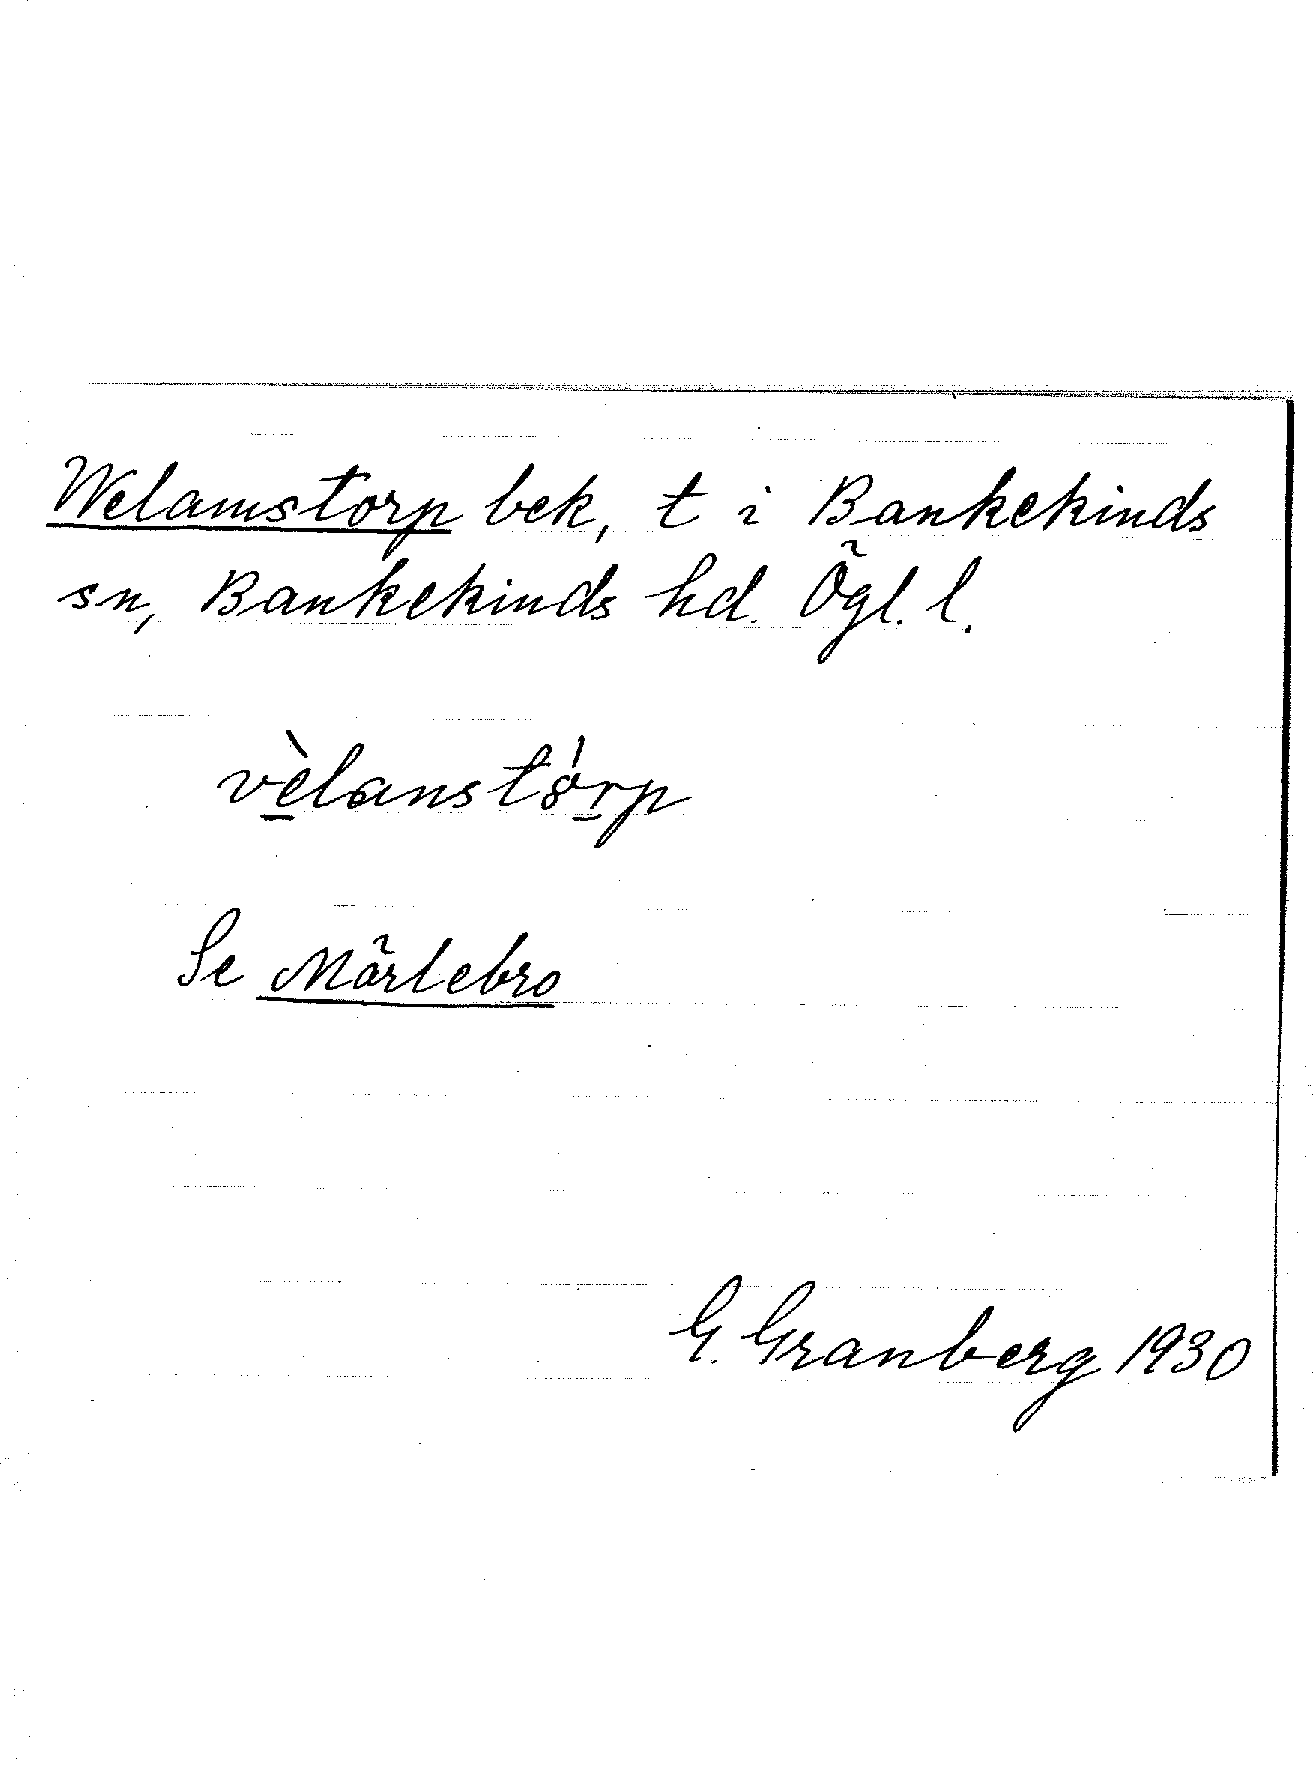 Welamstorp bek, t i Bankekinds
sn, Bankekinds hd. Ögl. l.
vèlanstórp
Se Märlebro
G. Granberg 1930